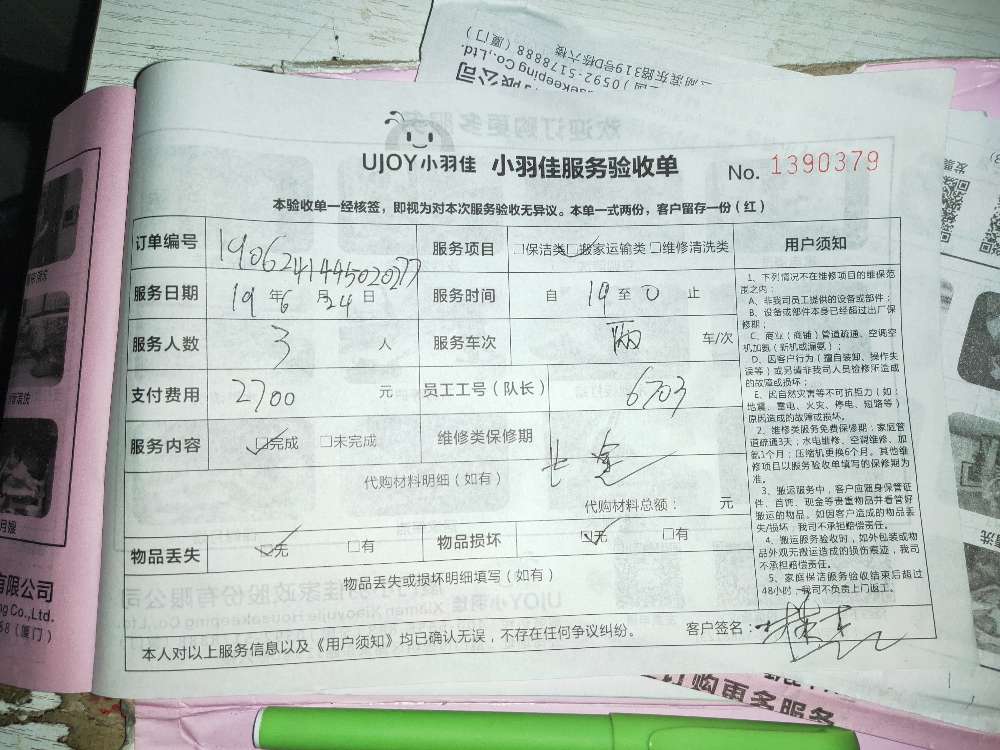 UJOY小羽佳 小羽佳服务验收单 No. 1390379
本验收单一经核签，即视为对本次服务验收无异议。本单一式两份，客户留存一份（红）
订单编号 190624144502027 服务项目 □保洁类 □搬家运输类 □维修清洗类 用户须知
服务日期 19 年 6 月 24 日 服务时间 自 19 至 0 止
服务人数 3 人 服务车次 两 车/次
支付费用 2700 元 员工工号（队长） 6703
服务内容 □完成 □未完成 维修类保修期
长途
代购材料明细（如有）
代购材料总额： 元
物品丢失 □无 □有 物品损坏 □无 □有
物品丢失或损坏明细填写（如有）
本人对以上服务信息以及《用户须知》均已确认无误，不存在任何争议纠纷。 客户签名：
1、下列情况不在维修项目的维保范
围之内：
A、非我司员工提供的设备或部件；
B、设备或部件本身已经超过出厂保
修期；
C、商业（商铺）管道疏通、空调空
机加氨（新机或漏氨）；
D、因客户行为（擅自装卸、操作失
误等）或另请非我司人员检修所造成
的故障或损坏；
E、因自然灾害等不可抗拒力（如：
地震、雷电、火灾、停电、短路等）
原因造成的故障或损坏。
2、维修类服务免费保修期：家庭管
道疏通3天；水电维修、空调维修、加
氨1个月；压缩机更换6个月。其他维
修项目以服务验收单填写的保修期为
准。
3、搬运服务中，客户应随身保管证
件、首饰、现金等贵重物品并看管好
搬运的物品。如因客户造成的物品丢
失/损坏，我司不承担赔偿责任。
4、搬运服务验收时，如外包装或物
品外观无搬运造成的损伤痕迹，我司
不承担赔偿责任。
5、家庭保洁服务验收结束后超过
48小时，我司不负责上门返工。
usekeeping Co.,Ltd.
0592-5178888（厦门）
湖滨东路319号D栋六楼
发票
有限公司
ng Co.,Ltd.
88（厦门）
月嫂
订购更多服务